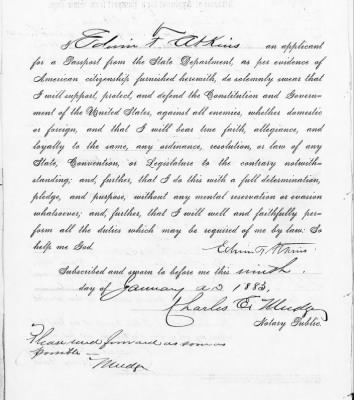 I Edwin F. Atkins an applicant
for a Passport from the State Department, as per evidence of
American citizenship furnished herewith, do solemnly swear that
I will support, protect, and defend the Constitution and Govern-
ment of the United States, against all enemies, whether domestic
or foreign, and that I will bear true faith, allegiance, and
loyalty to the same, any ordinance, resolution, or law of any
State, Convention, or Legislature to the contrary notwith-
standing; and, further, that I do this with a full determination,
pledge, and purpose, without any mental reservation or evasion
whatsoever; and, further, that I will well and faithfully per-
form all the duties which may be required of me by law: So
help me God.
Edwin F. Atkins.
Subscribed and sworn to before me this ninth
day of January A D 1883,
Charles E. Mudge
Notary Public.
Please send forward as soon as
possible —
Mudge